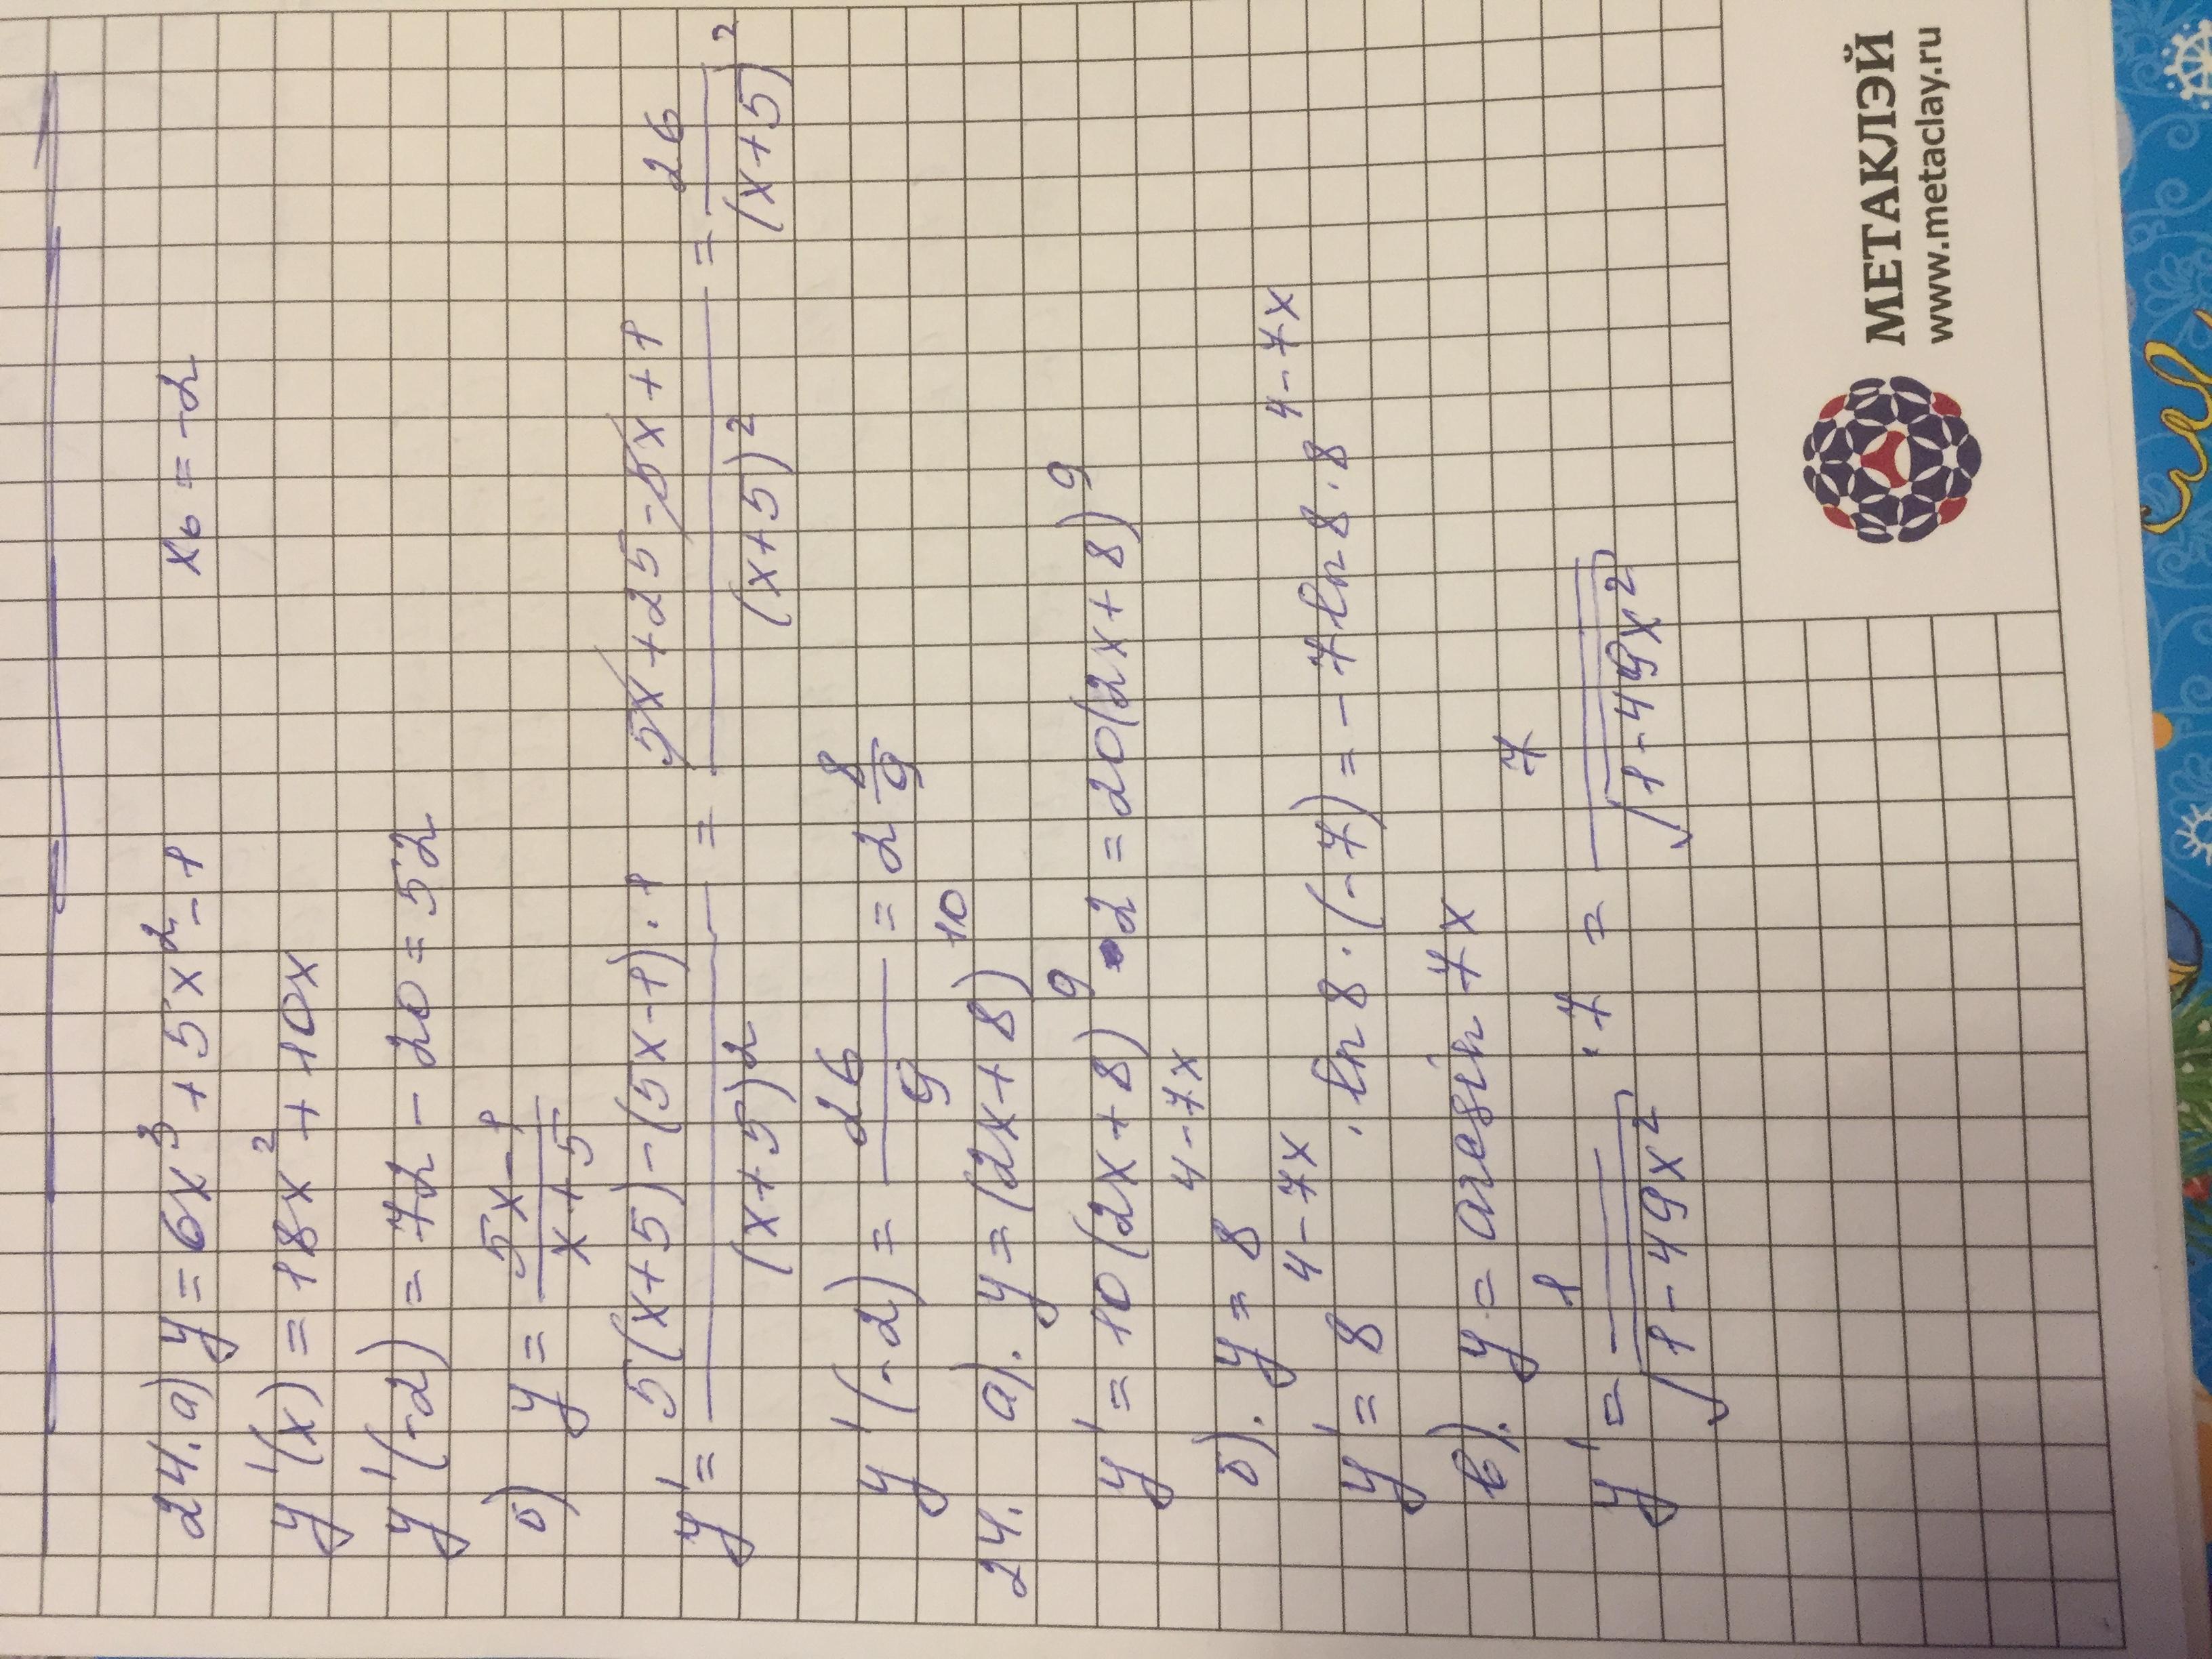 24. а) y = 6x³ + 5x² - 1    x₀ = -2
y'(x) = 18x² + 10x
y'(-2) = 72 - 20 = 52
б) y = (5x - 1)/(x + 5)
y' = (5(x+5) - (5x-1)·1)/(x+5)² = (5x + 25 - 5x + 1)/(x+5)² = 26/(x+5)²
y'(-2) = 26/9 = 2 8/9
24. а). y = (2x+8)¹⁰
y' = 10(2x+8)⁹ · 2 = 20(2x+8)⁹
б). y = 8^(4-7x)
y' = 8^(4-7x) · ln 8 · (-7) = -7 ln 8 · 8^(4-7x)
в). y = arcsin 7x
y' = 1/√(1 - 49x²) · 7 = 7/√(1 - 49x²)
МЕТАКЛЭЙ
www.metaclay.ru